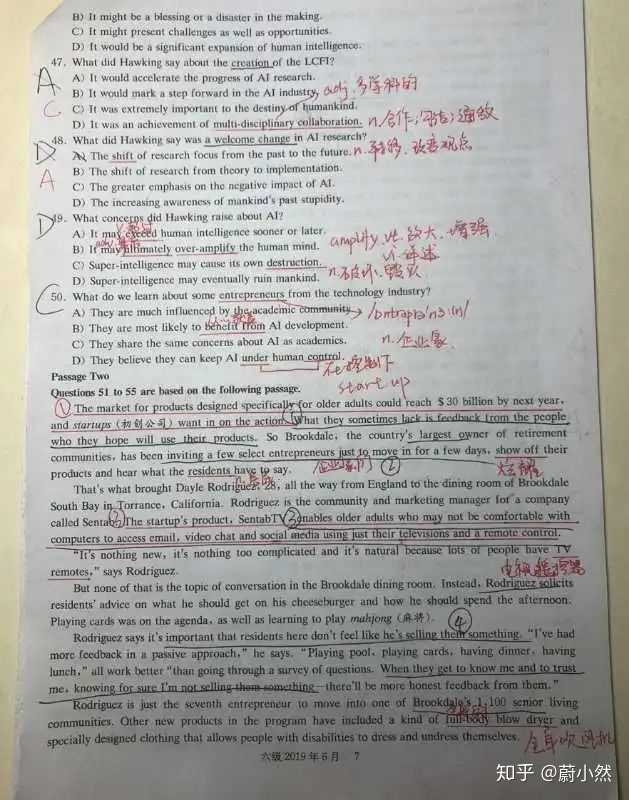 B) It might be a blessing or a disaster in the making.
C) It might present challenges as well as opportunities.
D) It would be a significant expansion of human intelligence.
47. What did Hawking say about the creation of the LCFI?
A
A) It would accelerate the progress of AI research.
B) It would mark a step forward in the AI industry. adj. 多学科的
C
C) It was extremely important to the destiny of humankind.
D) It was an achievement of multi-disciplinary collaboration. n. 合作;勾结;通敌
48. What did Hawking say was a welcome change in AI research?
D
A) The shift of research focus from the past to the future. n. 转移、改变观点
A
B) The shift of research from theory to implementation.
C) The greater emphasis on the negative impact of AI.
D) The increasing awareness of mankind's past stupidity.
D
49. What concerns did Hawking raise about AI?
A) It may exceed human intelligence sooner or later.
B) It may ultimately over-amplify the human mind. amplify. vt. 放大、增强
C) Super-intelligence may cause its own destruction.
D) Super-intelligence may eventually ruin mankind. n. 破坏、毁灭
C
50. What do we learn about some entrepreneurs from the technology industry?
A) They are much influenced by the academic community.
B) They are most likely to benefit from AI development.
C) They share the same concerns about AI as academics. n. 企业家
D) They believe they can keep AI under human control. 在控制下
Passage Two
start up
Questions 51 to 55 are based on the following passage.
① The market for products designed specifically for older adults could reach $30 billion by next year,
and startups (初创公司) want in on the action. What they sometimes lack is feedback from the people
who they hope will use their products. So Brookdale, the country's largest owner of retirement
communities, has been inviting a few select entrepreneurs just to move in for a few days, show off their
products and hear what the residents have to say. 企业家们 ② 炫耀
That's what brought Dayle Rodriguez, 28, all the way from England to the dining room of Brookdale
South Bay in Torrance, California. Rodriguez is the community and marketing manager for a company
called Sentab. The startup's product, SentabTV, ③ enables older adults who may not be comfortable with
computers to access email, video chat and social media using just their televisions and a remote control.
"It's nothing new, it's nothing too complicated and it's natural because lots of people have TV
remotes," says Rodriguez. 电视遥控器
But none of that is the topic of conversation in the Brookdale dining room. Instead, Rodriguez solicits
residents' advice on what he should get on his cheeseburger and how he should spend the afternoon.
Playing cards was on the agenda, as well as learning to play mahjong (麻将). ④
Rodriguez says it's important that residents here don't feel like he's selling them something. "I've had
more feedback in a passive approach," he says. "Playing pool, playing cards, having dinner, having
lunch," all work better "than going through a survey of questions. When they get to know me and to trust
me, knowing for sure I'm not selling them something—there'll be more honest feedback from them."
Rodriguez is just the seventh entrepreneur to move into one of Brookdale's 1,100 senior living
communities. Other new products in the program have included a kind of full-body blow dryer and
specially designed clothing that allows people with disabilities to dress and undress themselves. 全身吹风机
六级 2019 年 6 月 7
知乎 @蔚小然